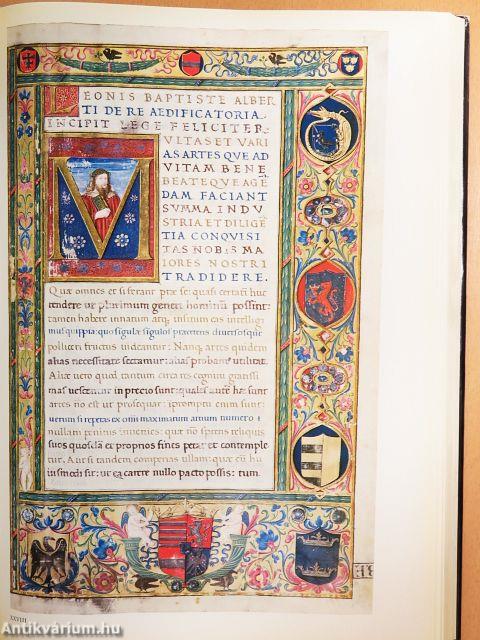 LEONIS BAPTISTE ALBER
TI DE RE AEDIFICATORIA
INCIPIT LEGE FELICITER
MVLTAS ET VARI
AS ARTES QVE AD
VITAM BENE
BEATEQVE AGĒ
DAM FACIANT
SVMMA INDV
STRIA ET DILIGĒ
TIA CONQVISI
TAS NOBIS MA
IORES NOSTRI
TRADIDERE.
Quæ omnes et si ferant præ se: quasi certatī huc
tendere ut plurimum generi hominū possint:
tamen habere innatum
mus quippiā: quo singulæ singulos præ cæteris diversosque
polliceri fructus videantur: Nanq artes quidem
alias necessitate sectamur: alias probant utilitat.
Aliæ vero quod tantum circa res cognitu gratissi
mas versentur in precio sunt: quales autem hæ sint
artes no est ut prosequar: ipromptu enim sunt
verum si repetas ex omi maximarum artium numero
suos quosdā et proprios fines petat et contemple
tur. Aut si tandem comperias ullam: quæ cū hu
iusmodi sit: ut ea carere nullo pacto possis: tum
XXVIII
Antikvárium.hu